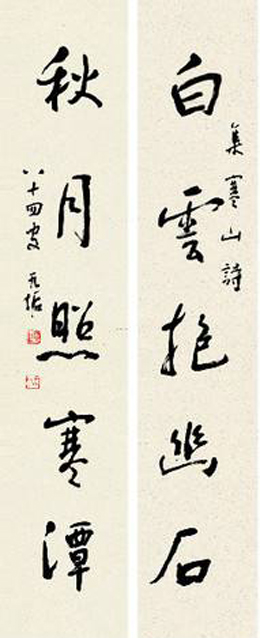 白雲抱幽石
集寒山詩
秋月照寒潭
八十四叟